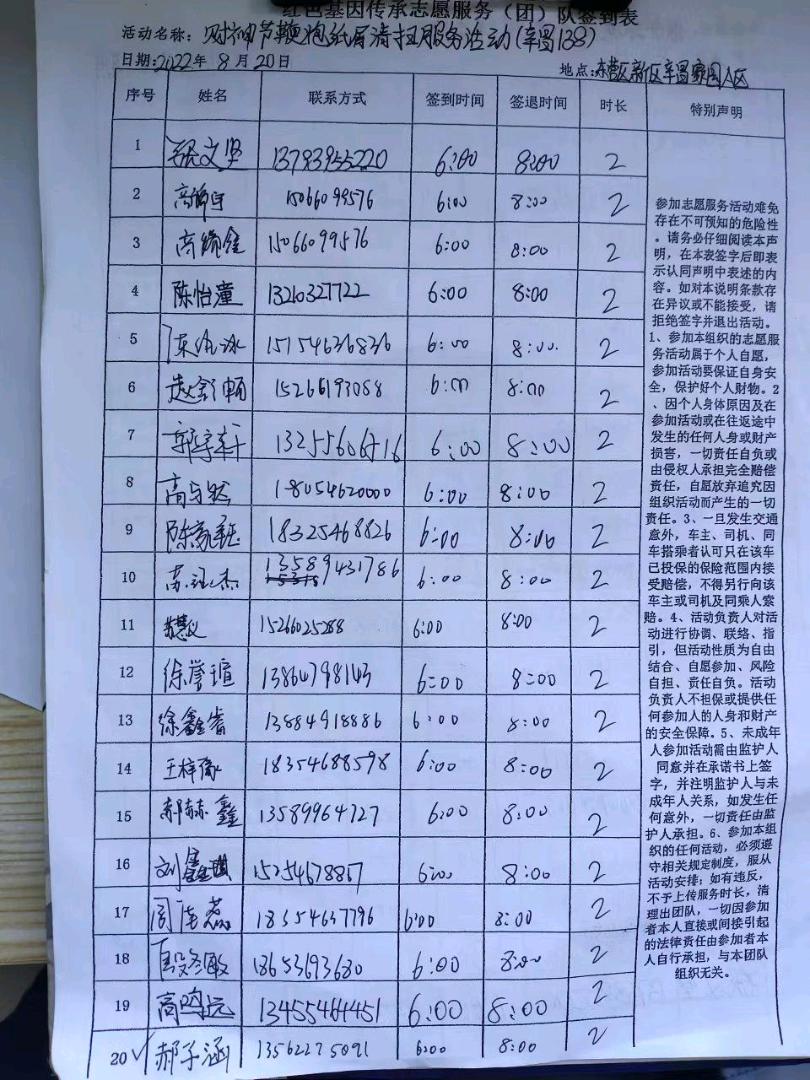 红色基因传承志愿服务（团）队签到表
活动名称：财神节鞭炮纸屑清扫服务活动(辛昌138)
日期:2022年8月20日
地点:东营区新区辛昌家园A区
序号 姓名 联系方式 签到时间 签退时间 时长 特别声明
1 张文坚 13793955220 6:00 8:00 2
2 15066099576 6:00 8:00 2
3 15066099576 6:00 8:00 2
4 陈怡潼 13210327722 6:00 8:00 2
5 15154636836 6:00 8:00 2
6 15266193058 6:00 8:00 2
7 郭宇轩 13255606716 6:00 8:00 2
8 18054620000 6:00 8:00 2
9 18325468826 6:00 8:00 2
10 13589431786 6:00 8:00 2
11 15266025288 6:00 8:00 2
12 徐誉瑄 13864798143 6:00 8:00 2
13 徐鑫睿 13884918886 6:00 8:00 2
14 王梓豫 18354688598 6:00 8:00 2
15 郝赫鑫 13589964727 6:00 8:00 2
16 刘鑫琪 15254678867 6:00 8:00 2
17 周佳蕊 18554637796 6:00 8:00 2
18 18653693680 6:00 8:00 2
19 高鸣远 13455464451 6:00 8:00 2
20 郝子涵 13562275091 6:00 8:00 2
参加志愿服务活动难免
存在不可预知的危险性
。请务必仔细阅读本声
明，在本表签字后即表
示认同声明中表述的内
容。如对本说明条款存
在异议或不能接受，请
拒绝签字并退出活动。
1、参加本组织的志愿服
务活动属于个人自愿，
参加活动要保证自身安
全，保护好个人财物。2
、因个人身体原因及在
参加活动或在往返途中
发生的任何人身或财产
损害，一切责任自负或
由侵权人承担完全赔偿
责任，自愿放弃追究因
组织活动而产生的一切
责任。3、一旦发生交通
意外，车主、司机、同
车搭乘者认可只在该车
已投保的保险范围内接
受赔偿，不得另行向该
车主或司机及同乘人索
赔。4、活动负责人对活
动进行协调、联络、指
引，但活动性质为自由
结合、自愿参加、风险
自担、责任自负。活动
负责人不担保或提供任
何参加人的人身和财产
的安全保障。5、未成年
人参加活动需由监护人
同意并在承诺书上签
字，并注明监护人与未
成年人关系，如发生任
何意外，一切责任由监
护人承担。6、参加本组
织的任何活动，必须遵
守相关规定制度，服从
活动安排；如有违反，
不予上传服务时长，清
理出团队，一切因参加
者本人直接或间接引起
的法律责任由参加者本
人自行承担，与本团队
组织无关。